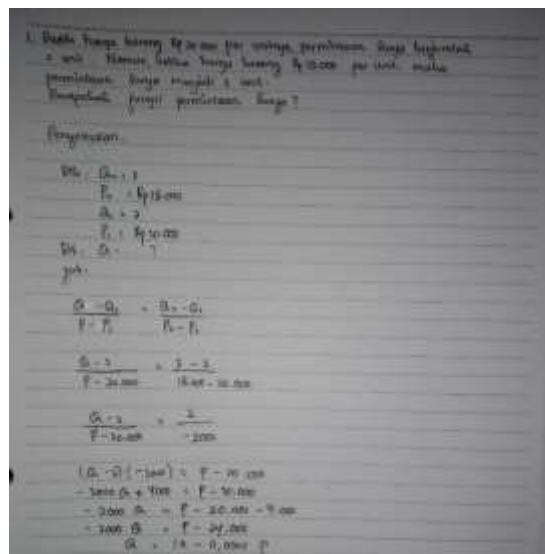 1. Ketika harga barang Rp 20.000 per unitnya, permintaan Bunga
2 unit. Namun, ketika harga barang Rp 18.000 per unit maka
permintaan Bunga menjadi 3 unit.
fungsi permintaan Bunga ?
Penyelesaian
Dik : Q₂ = 3
P₂ = Rp 18.000
Q₁ = 2
P₁ = Rp 20.000
Dit : Q = ?
Jwb.
Q - Q₁ / P - P₁ = Q₂ - Q₁ / P₂ - P₁
Q - 2 / P - 20.000 = 3 - 2 / 18.000 - 20.000
Q - 2 / P - 20.000 =
(Q - 2) (-2000) = P - 20.000
- 2000 Q + 4000 = P - 20.000
- 2000 Q = P - 20.000 - 4.000
- 2000 Q = P - 24.000
Q = 12 - 0,0005 P